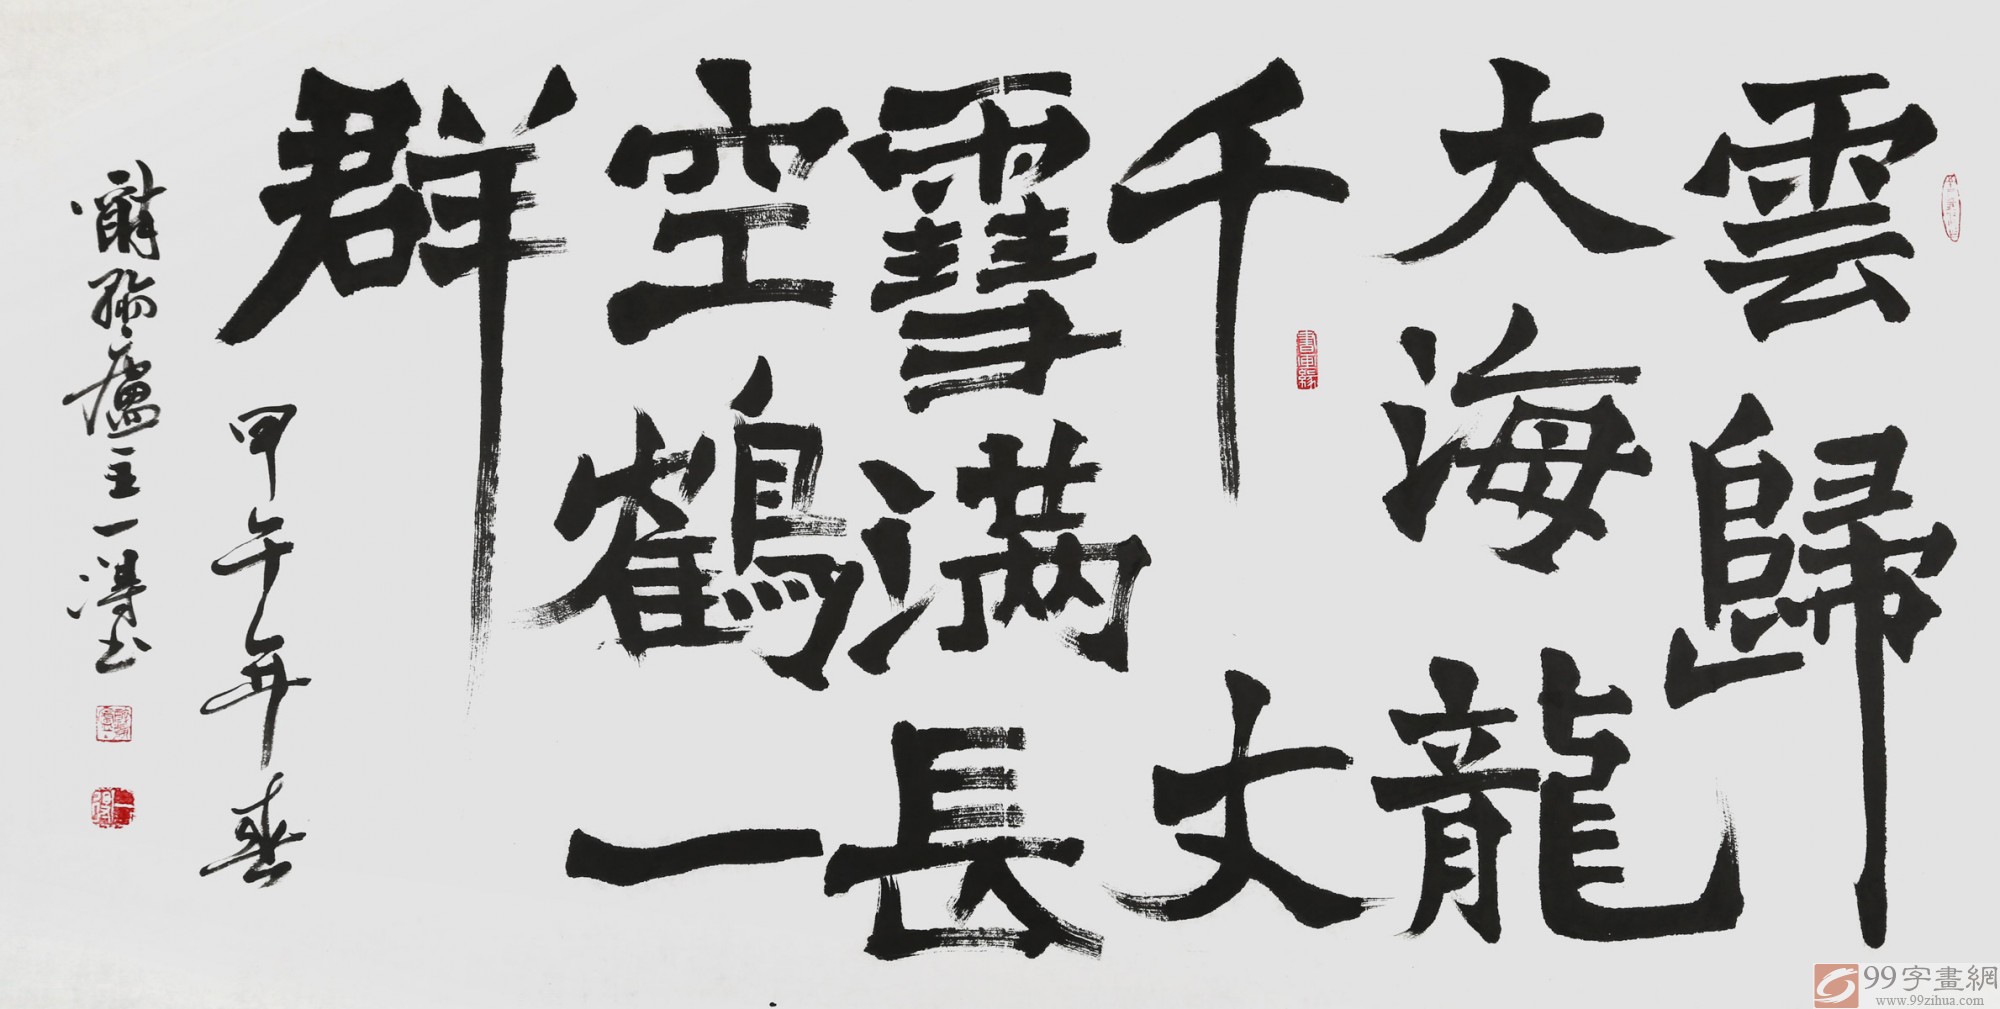 雲歸
大海龍
千丈
書画緣
䨮滿長
空鶴一
群
甲午年春
廬主一得书
99字畫網
www.99zihua.com